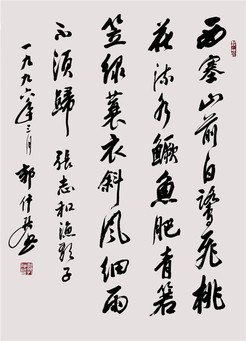 西塞山前白鹭飞桃
花流水鳜鱼肥青箬
笠绿蓑衣斜风细雨
不须归 张志和渔歌子
一九九六年三月 郭仲